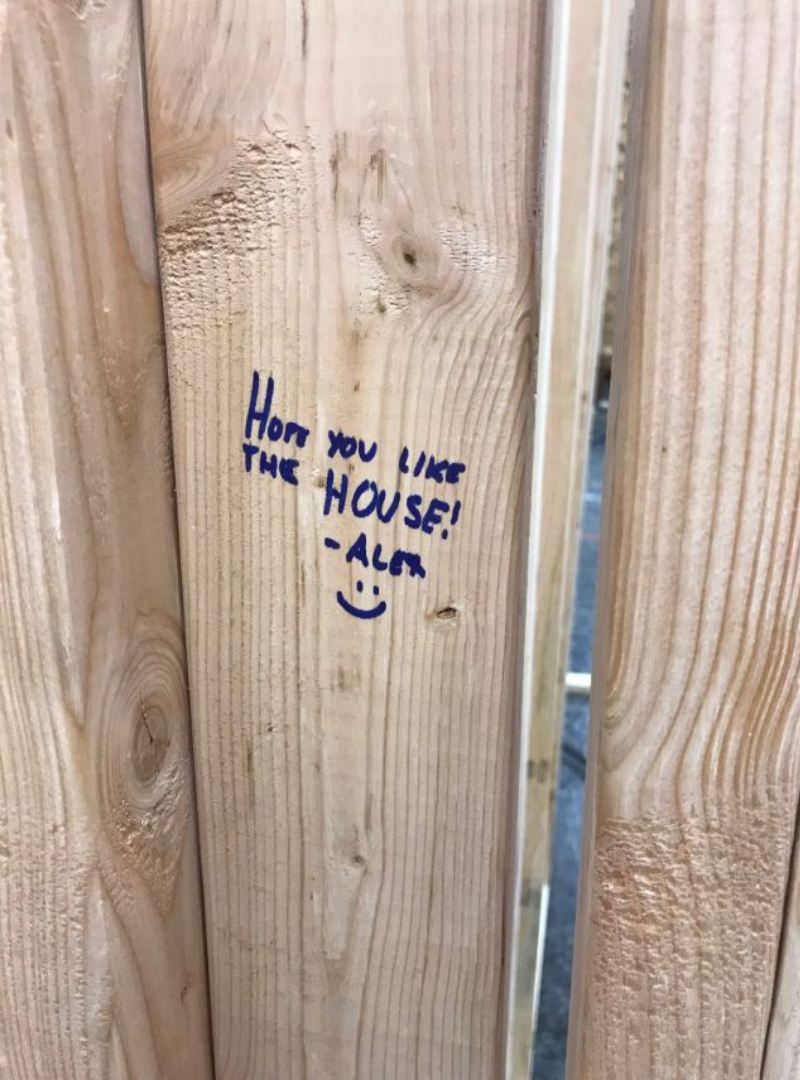 HOPE YOU LIKE
THE HOUSE!
-ALEX